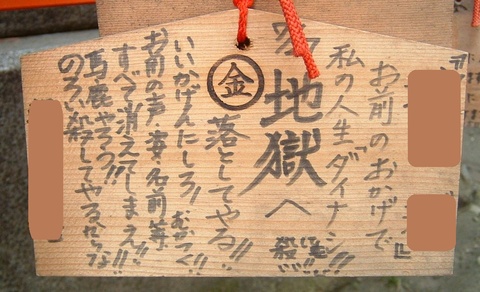 お前のおかげで
私の人生「ダイナシ」!!
地獄へ
㊎ 落としてやる!!
いいかげんにしろ!!
お前の声・姿・名前等
すべて消えてしまえ!!
馬鹿やろう!!
のろい殺してやるからな!!